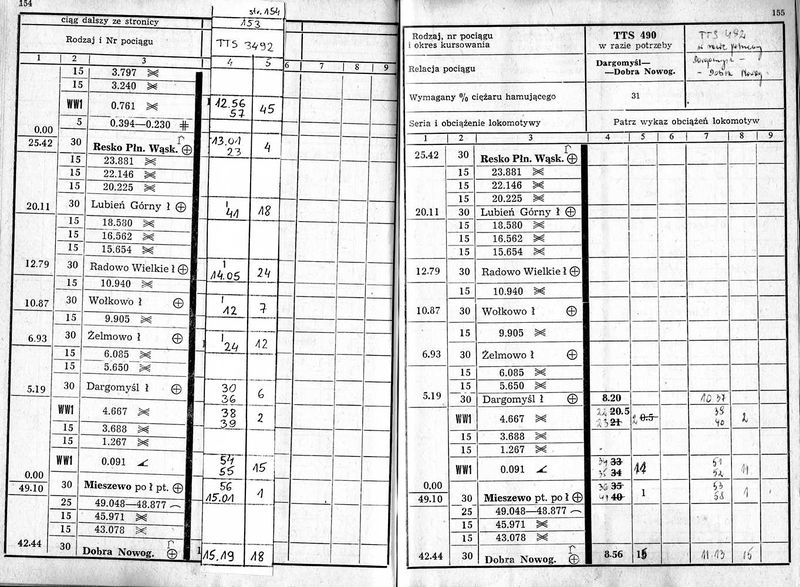 154
ciąg dalszy ze stronicy
str. 154
153
Rodzaj i Nr pociągu
TTS 3492
1 2 3 4 5 6 7 8 9
15 3.797
15 3.240
WW1 0.761 12.56 45
57
5 0.394—0.230 #
0.00
25.42 30 Resko Płn. Wąsk. 13.01 4
23
15 23.881
15 22.146
15 20.225
20.11 30 Lubień Górny ł | 18
41
15 18.580
15 16.562
15 15.654
12.79 30 Radowo Wielkie ł | 24
14.05
15 10.940
10.87 30 Wołkowo ł | 7
12
15 9.905
6.93 30 Żelmowo ł | 12
24
15 6.085
15 5.650
5.19 30 Dargomyśl ł 30 6
36
WW1 4.667 38 2
39
15 3.688
15 1.267
WW1 0.091 54 15
55
0.00
49.10 30 Mieszewo po ł pt. 56 1
15.01
25 49.048—48.877
15 45.971
15 43.078
42.44 30 Dobra Nowog. 15.19 18
155
Rodzaj, nr pociągu
i okres kursowania
TTS 490
w razie potrzeby
TTS 492
w razie potrzeby
Relacja pociągu
Dargomyśl—
—Dobra Nowog.
Dargomyśl —
— Dobra Nowog
Wymagany % ciężaru hamującego 31
Seria i obciążenie lokomotywy Patrz wykaz obciążeń lokomotyw
1 2 3 4 5 6 7 8 9
25.42 30 Resko Płn. Wąsk.
15 23.881
15 22.146
15 20.225
20.11 30 Lubień Górny ł
15 18.580
15 16.562
15 15.654
12.79 30 Radowo Wielkie ł
15 10.940
10.87 30 Wołkowo ł
15 9.905
6.93 30 Żelmowo ł
15 6.085
15 5.650
5.19 30 Dargomyśl ł 8.20 10 37
WW1 4.667 22 20.5 2 0.5 38 2
23 21 40
15 3.688
15 1.267
WW1 0.091 33 11 51 11
34 52
0.00 35 1 53 1
49.10 30 Mieszewo pt. po ł 40 58
25 49.048—48.877
15 45.971
15 43.078
42.44 30 Dobra Nowog. 8.56 15 11.13 15